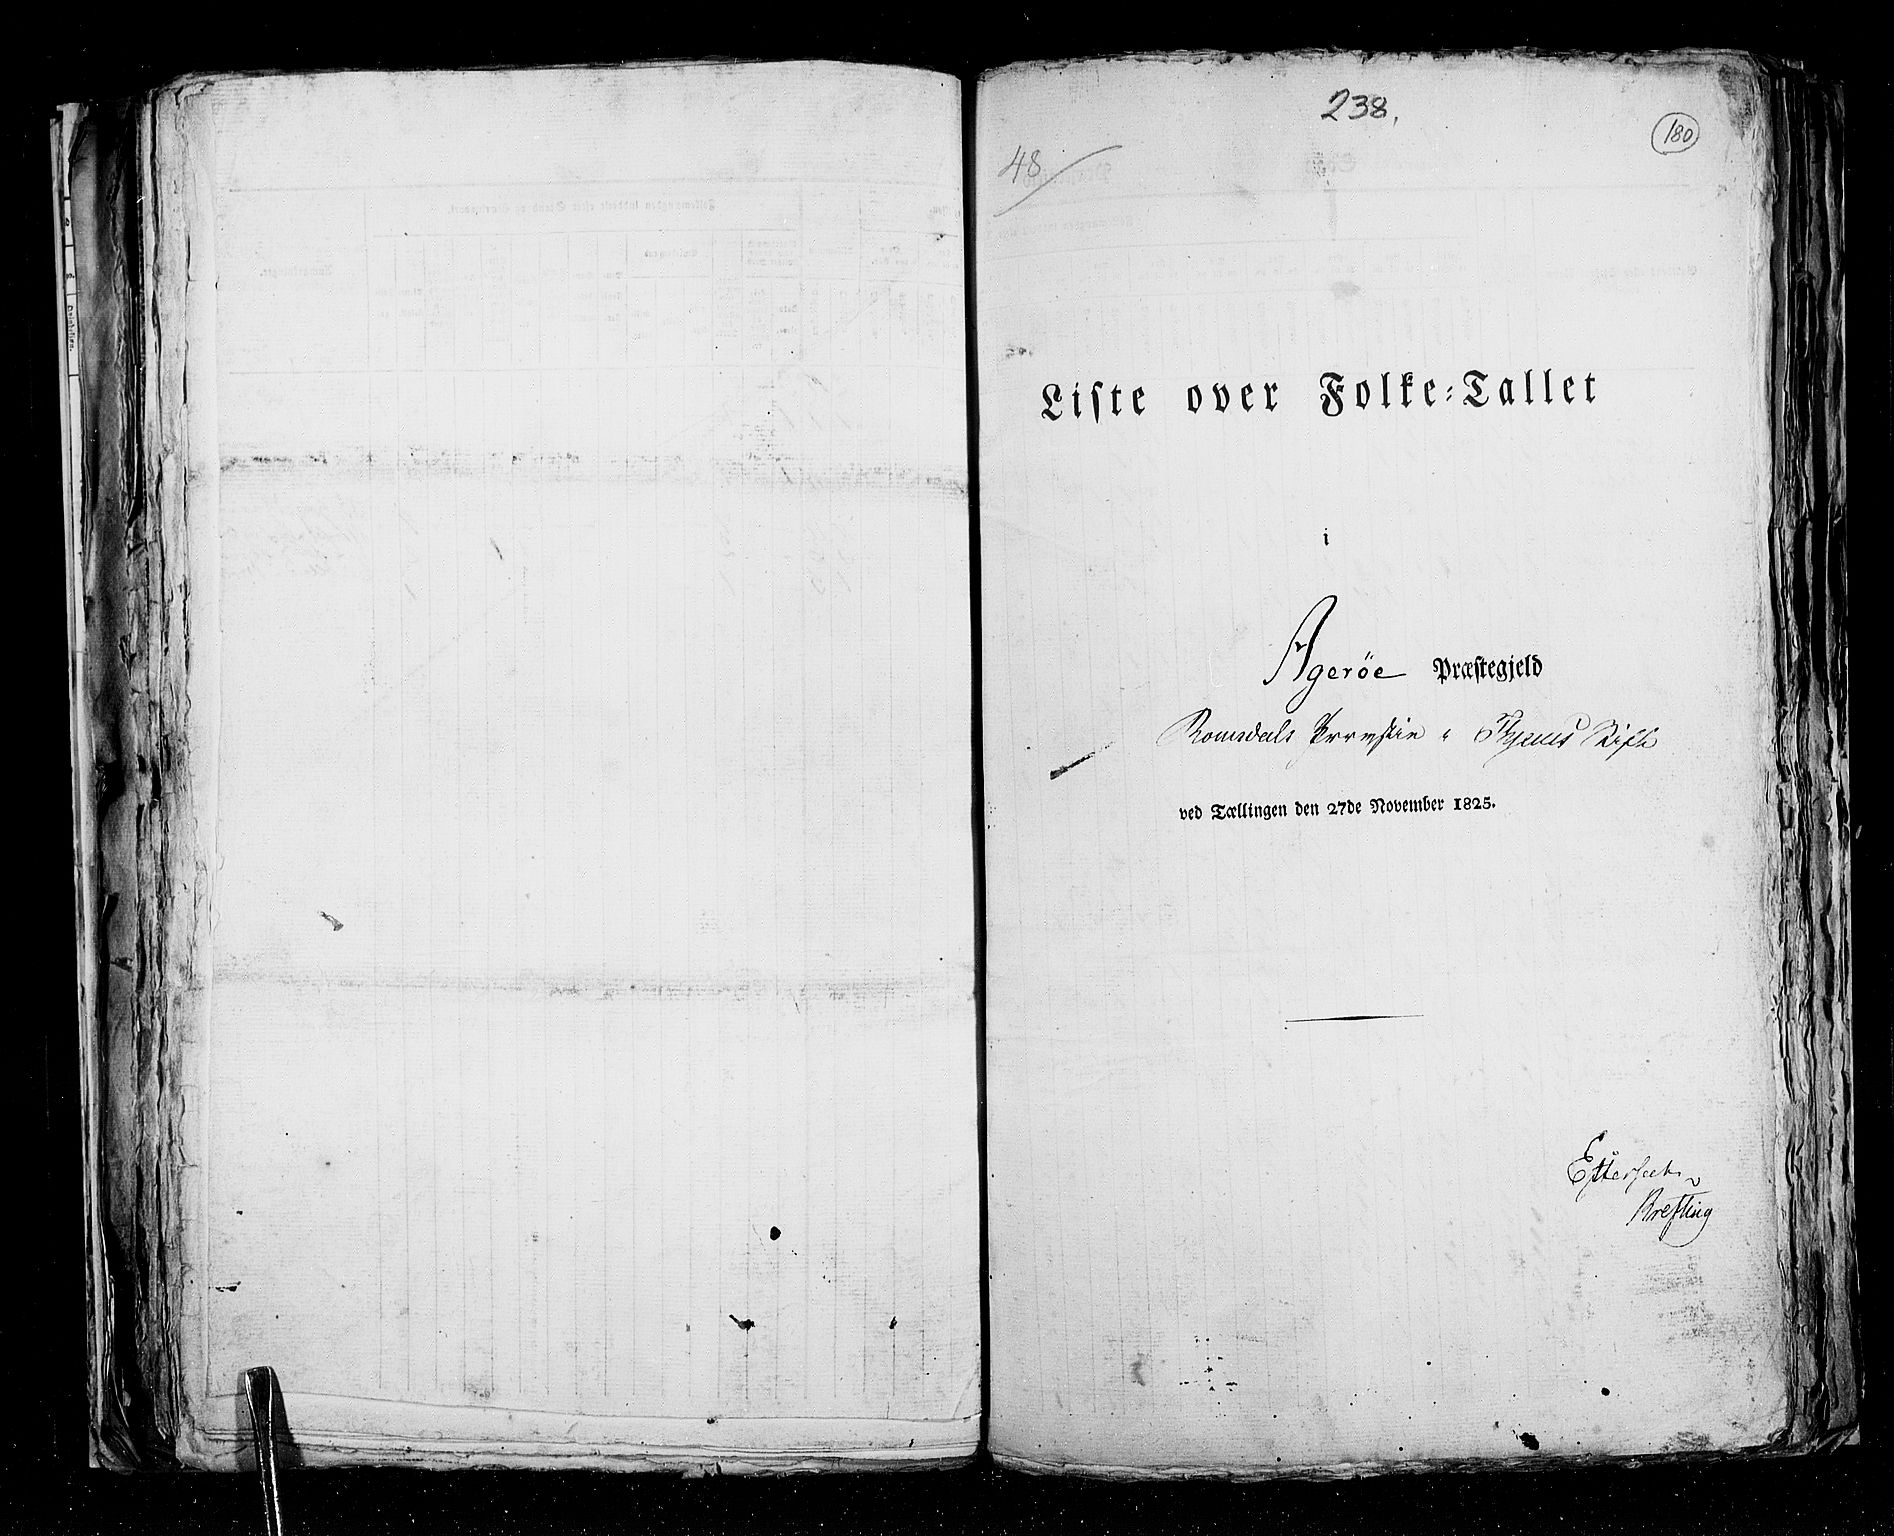 238.
180
48
Liste over Folke-Tallet
i
Ageröe Præstegjeld
Romsdals Provstie i Thjems Stift
ved Tællingen den 27de November 1825.
Efterseet
Krefting